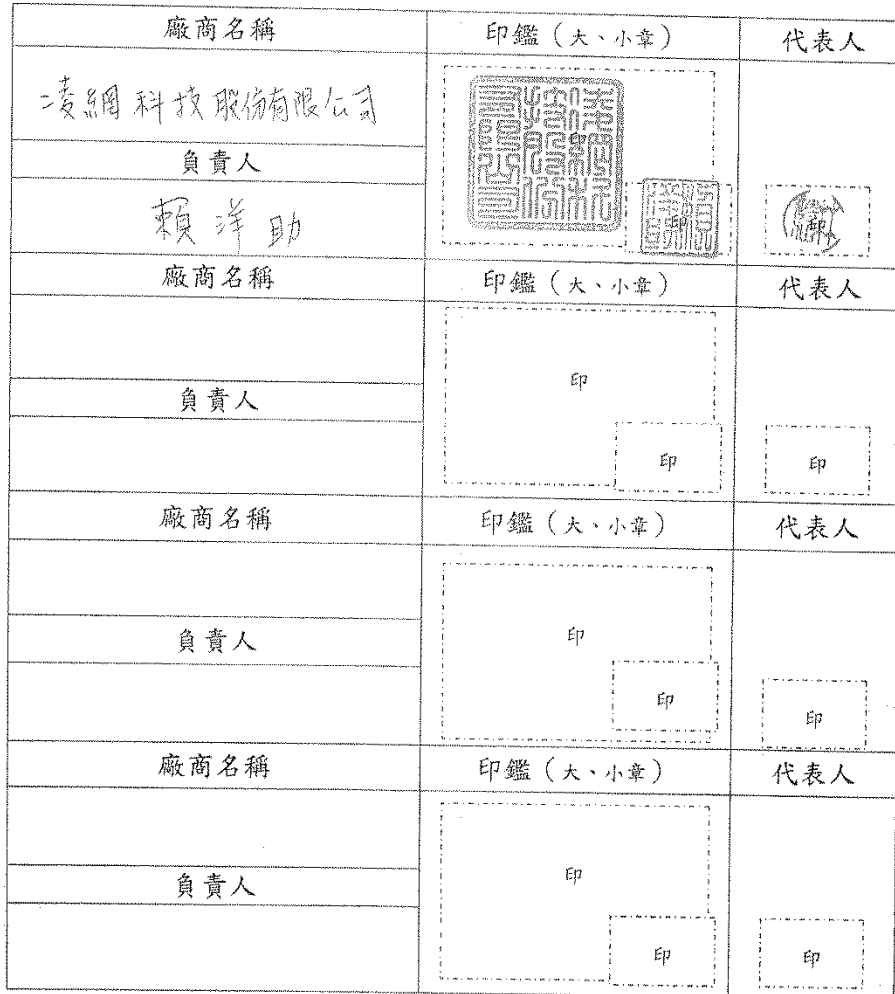 廠商名稱 印鑑（大、小章） 代表人
凌網科技股份有限公司
印
負責人
賴洋助
印 印
廠商名稱 印鑑（大、小章） 代表人
印
負責人
印 印
廠商名稱 印鑑（大、小章） 代表人
印
負責人
印 印
廠商名稱 印鑑（大、小章） 代表人
印
負責人
印 印